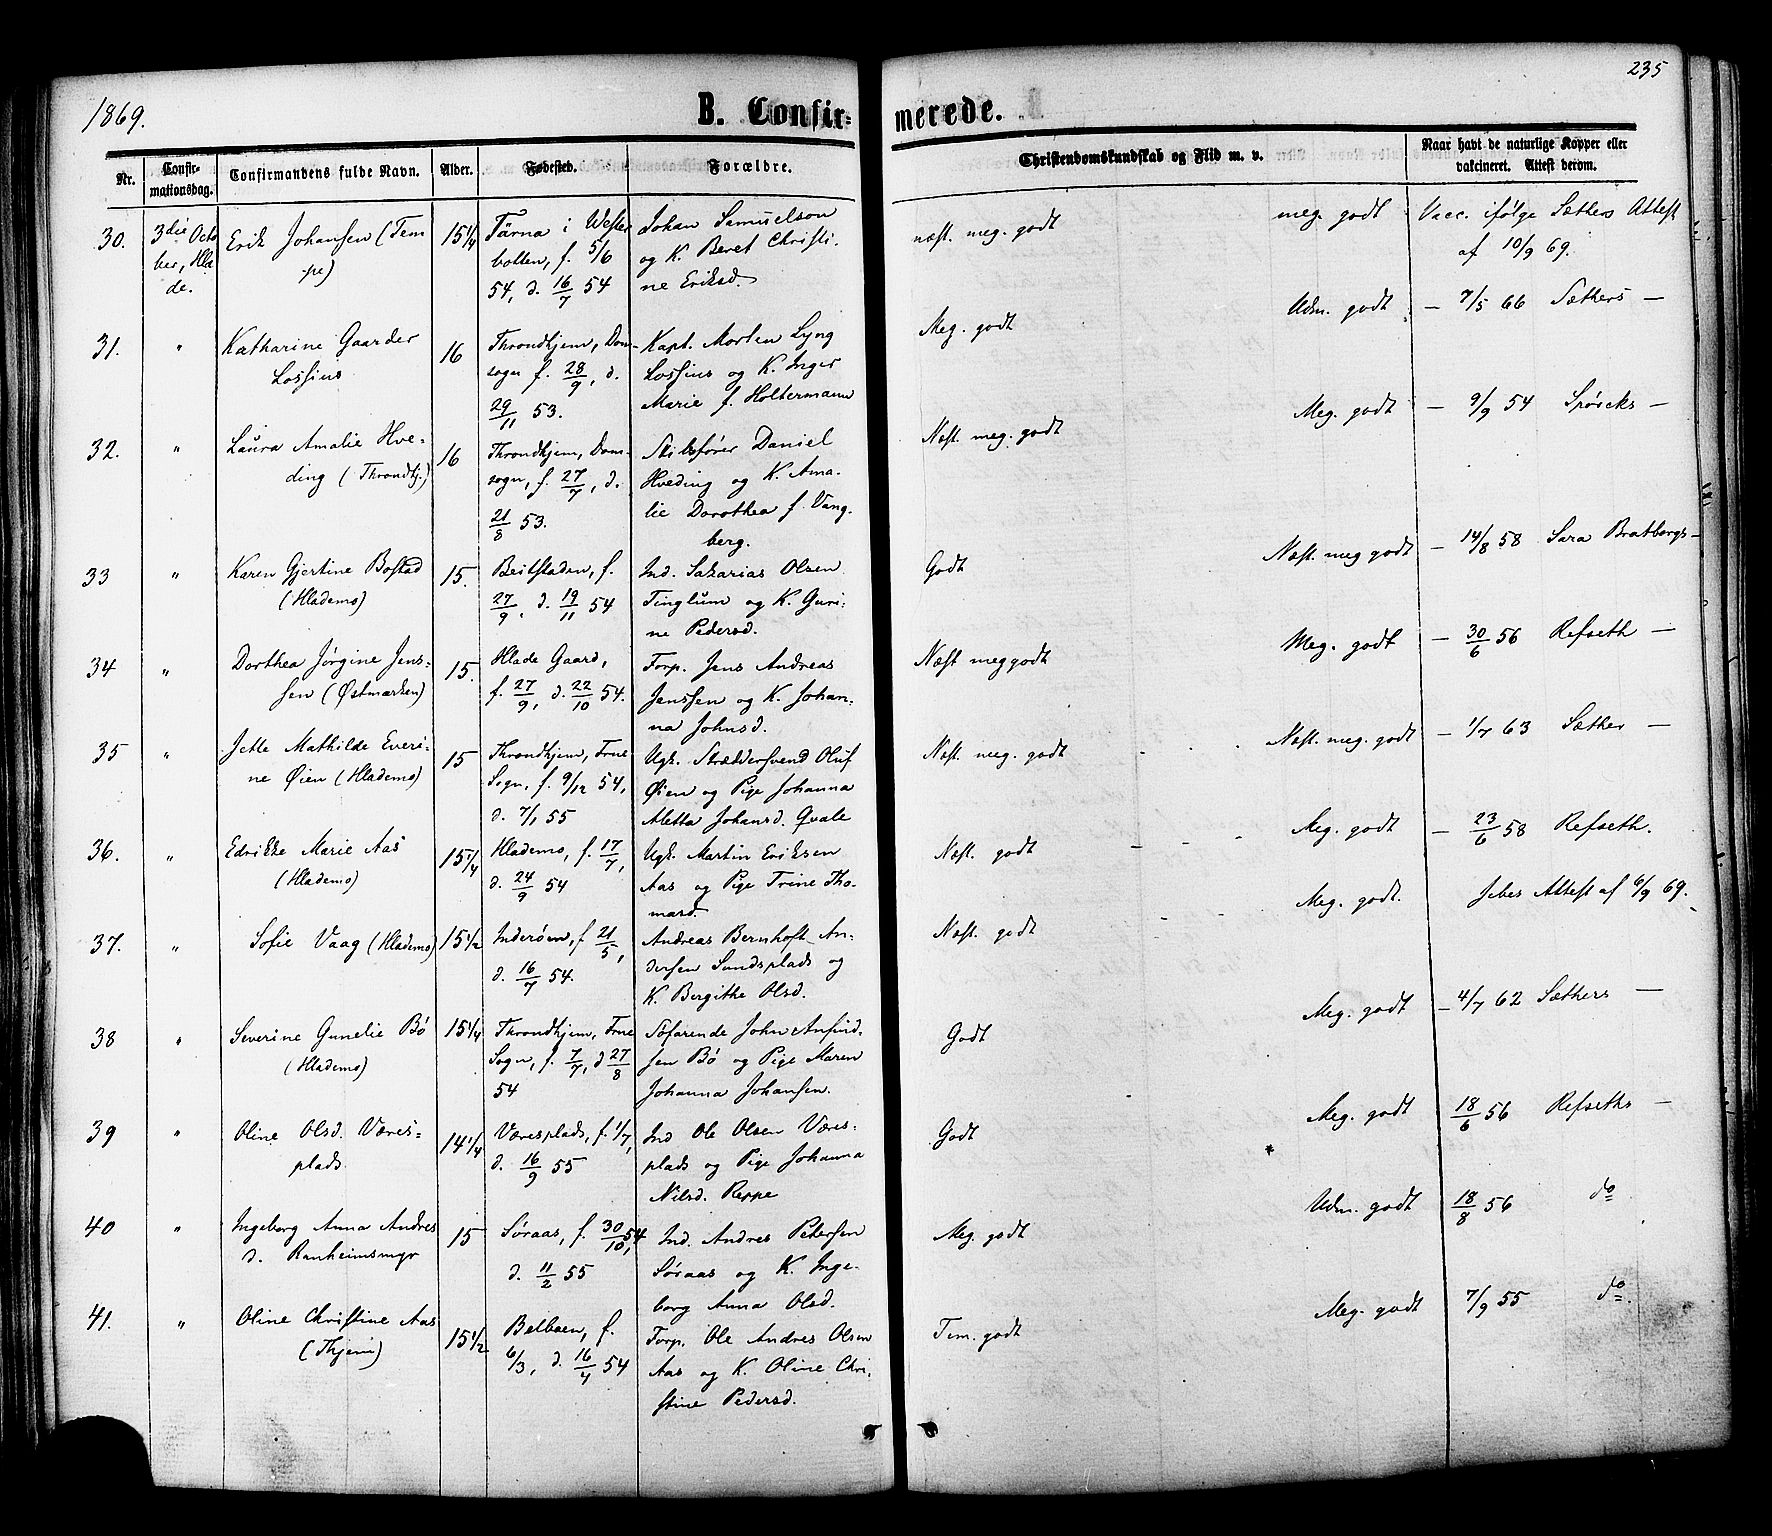 1869.
B. Confir=
merede.
235
Nr.
Confir-
mationsdag.
Confirmandens fulde Navn.
Alder.
Fødested.
Forældre.
Christendomskundskab og Flid m. v.
Naar havt de naturlige Kopper eller
vakcineret. Attest derom.
30.
3die Octo
ber, Hla
de.
Erik Johansen (Tem
pe)
15 1/4
Tärna i Wester
botten, f. 5/6
54, d. 16/7 54
Johan Samuelson
og K. Beret Christi-
ne Eriksd.
næst. meg. godt
meg. godt
Vacc. ifølge Sæthers Attest
af 10/9 69.
31.
"
Katharine Gaarder
Lossius
16
Throndhjem, Dom-
sogn f. 28/9, d.
29/11 53.
Kapt. Morten Lyng
Lossius og K. Inger
Marie f. Holtermann
Meg. godt
Udm. godt
– 7/5 66 Sæthers –
32.
"
Laura Amalie Hve-
ding (Throndhj.)
16
Throndhjem, Dom-
sogn, f. 27/7, d.
21/8 53.
Skibsfører Daniel
Hveding og K. Ama-
lie Dorothea f. Vang-
berg.
Næst. meg. godt
Meg. godt
– 9/9 54 Spörcks –
33
"
Karen Gjertine Bostad
(Hlademo)
15.
Beitstaden, f.
27/9, d. 19/11 54
Ind. Sakarias Olsen
Tinglum og K. Guri-
ne Pedersd.
Godt
Næst. meg godt
– 14/8 58 Sara Bratbergs –
34
"
Dorthea Jørgine Jens-
sen (Østmarken)
15.
Hlade Gaard,
f. 27/9, d. 22/10 54.
Forp. Jens Andreas
Jenssen og K. Johan-
na Johnsd.
Næst meg godt
Meg. godt
– 30/6 56 Refseth –
35
"
Jette Mathilde Everi-
ne Øien (Hlademo)
15
Throndhjem, Frue
Sogn, f. 9/12 54,
d. 7/1 55
Ugk. Skræddersvend Oluf
Øien og Pige Johanna
Aletta Johansd. Qvale
Næst. meg. godt
Næst. meg. godt
– 1/7 63 Sæther –
36.
"
Edrikke Marie Aas
(Hlademo)
15 1/4
Hlademo, f. 17/7,
d. 24/9 54
Ugk. Martin Eriksen
Aas og Pige Trine Tho-
masd.
Næst. godt
Meg. godt
– 23/6 58 Refseth.
37.
"
Sofie Vaag (Hlademo)
15 1/2
Inderøen, f 21/5,
d. 16/7 54.
Andreas Bernhoft An-
dersen Sundsplads og
K. Bergithe Olsd.
Næst. godt
Meg. godt.
Attest af 6/9 69.
38
"
Severine Gunelie Bö
(Hlademo)
15 1/4
Throndhjem, Frue
Sogn, f. 7/7, d 27/8
54
Söfarende John Anfind-
sen Bö og Pige Maren
Johanna Johansen.
Godt
Meg. godt
– 4/7 62 Sæthers –
39
"
Oline Olsd. Væres-
plads.
14 1/4
Væresplads, f. 1/7,
d. 16/9 55
Ind Ole Olsen Væres-
plads og Pige Johanna
Nilsd. Reppe
Godt
Meg. godt
18/6 56 Refseths –
40
"
Ingeborg Anna Andres
d. Ranheimsmyr
15
Søraas, f. 30/10 54,
d. 11/2 55
Ind. Andres Petersen
Søraas og K. Inge-
borg Anna Olsd.
Meg. godt
Udm. godt
18/8 56 do
41.
"
Oline Christine Aas
(Thjem)
15 1/2
Belbuen, f.
6/3, d. 16/4 54
Forp. Ole Andres Olsen
Aas og K. Oline Chri-
stine Pedersd.
Tem. godt
Meg. godt
7/9 55 do.